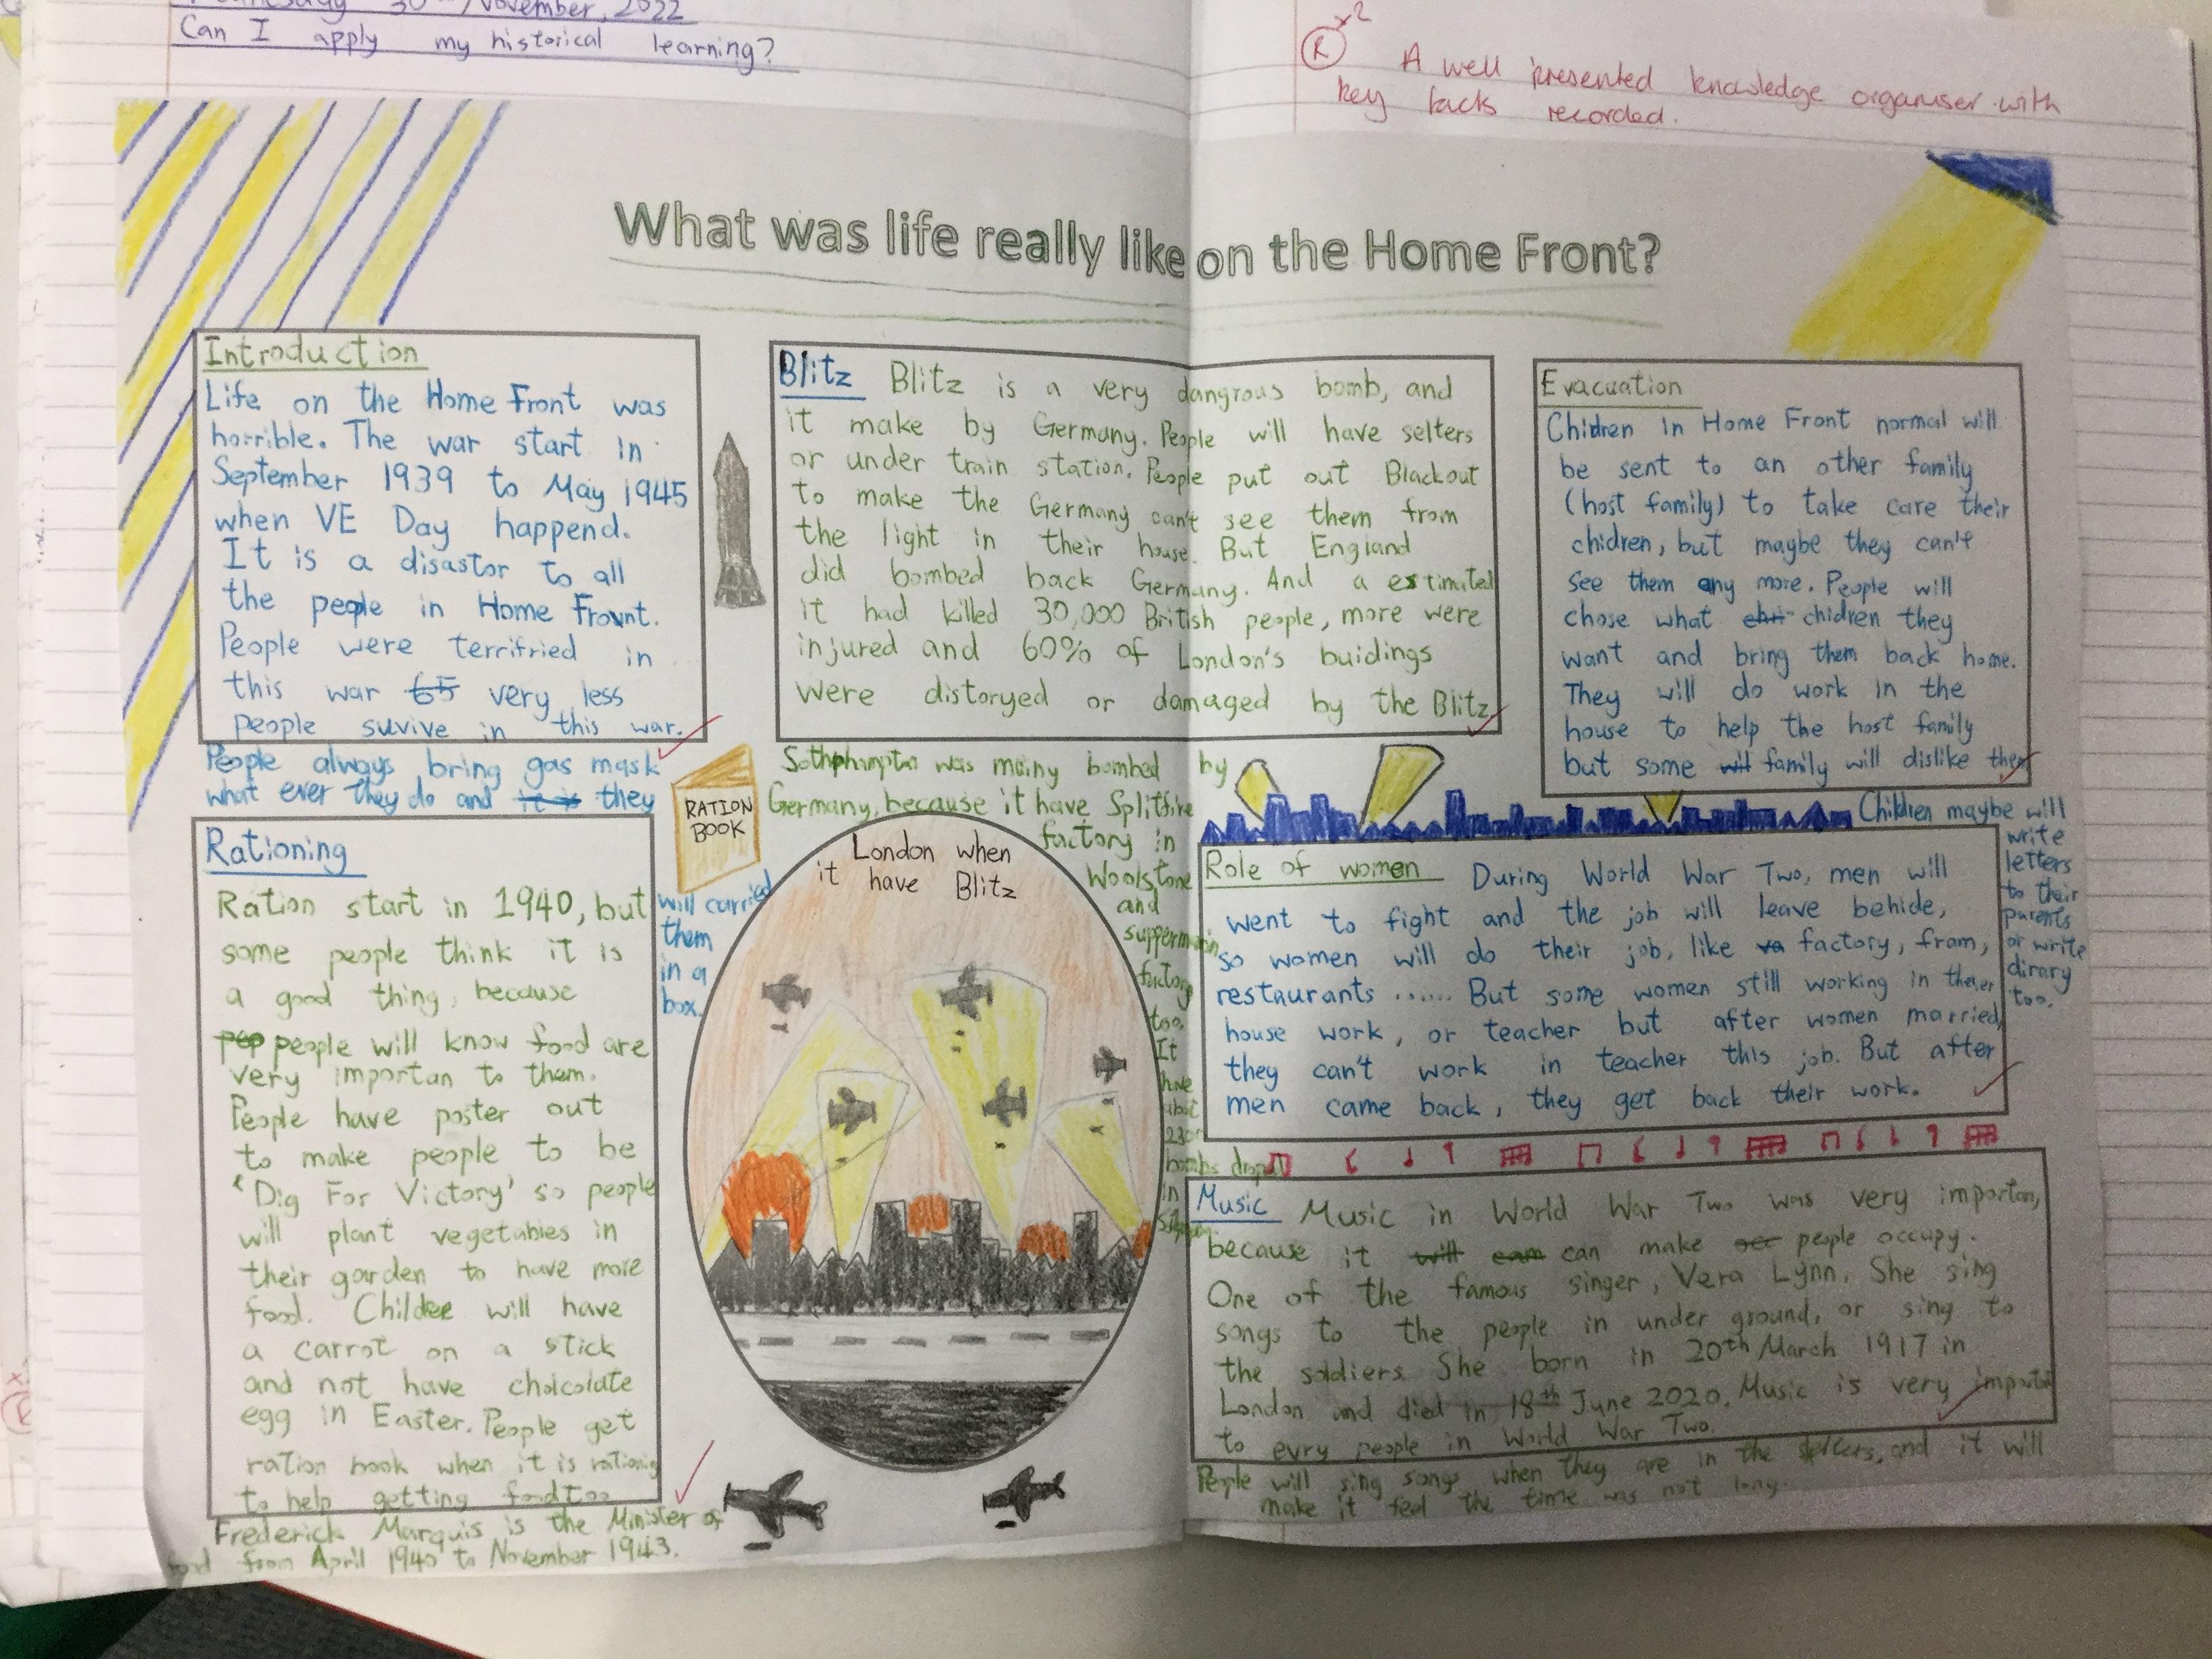 Wednesday 30th November, 2022
Can I apply my historical learning?
R x2
A well presented knowledge organiser with
key facts recorded.
What was life really like on the Home Front?
Introduction
Life on the Home Front was
horrible. The war start in
September 1939 to May 1945
when VE Day happend.
It is a disastor to all
the people in Home Frount.
People were terrifried in
this war 65 very less
people suvive in this war.
People always bring gas mask
what ever they do and it is they
will carried
them
in a
box.
Blitz Blitz is a very dangrous bomb, and
it make by Germany. People will have selters
or under train station. People put out Blackout
to make the Germany can't see them from
the light in their house. But England
did bombed back Germany. And a estimated
it had killed 30,000 British people, more were
injured and 60% of London's buidings
were distoryed or damaged by the Blitz
Germany, because it have Splitfire
factory in
Woolstone
and
factory
too.
It
have
bombs
in
Evacuation
Chidren in Home Front normal will
be sent to an other family
(host family) to take care their
chidren, but maybe they can't
see them any more. People will
chose what chidren they
want and bring them back home.
They will do work in the
house to help the host family
but some will family will dislike them
Children maybe will
write
letters
to their
parents
or write
dirary
too.
RATION
BOOK
Rationing
Ration start in 1940, but
some people think it is
a good thing, because
pep people will know food are
very importan to them.
People have poster out
to make people to be
'Dig For Victory' so people
will plant vegetables in
their garden to have more
food. Childer will have
a carrot on a stick
and not have cholcolate
egg in Easter. People get
ration book when it is rationig
to help getting food too
Frederick Marquis is the Minister of
food from April 1940 to November 1943.
London when
it have Blitz
Role of women During World War Two, men will
went to fight and the job will leave behide,
so women will do their job, like factory, fram,
restaurants ...... But some women still working in their
house work, or teacher but after women married,
they can't work in teacher this job. But after
men came back, they get back their work.
Music Music in World War Two was very importan,
because it will can can make people occupy.
One of the famous singer, Vera Lynn. She sing
songs to the people in under ground, or sing to
the soldiers. She born in 20th March 1917 in
London and died in 18th June 2020. Music is very importan
to evry people in World War Two.
People will sing songs when they are in the selters, and it will
make it feel the time was not long.